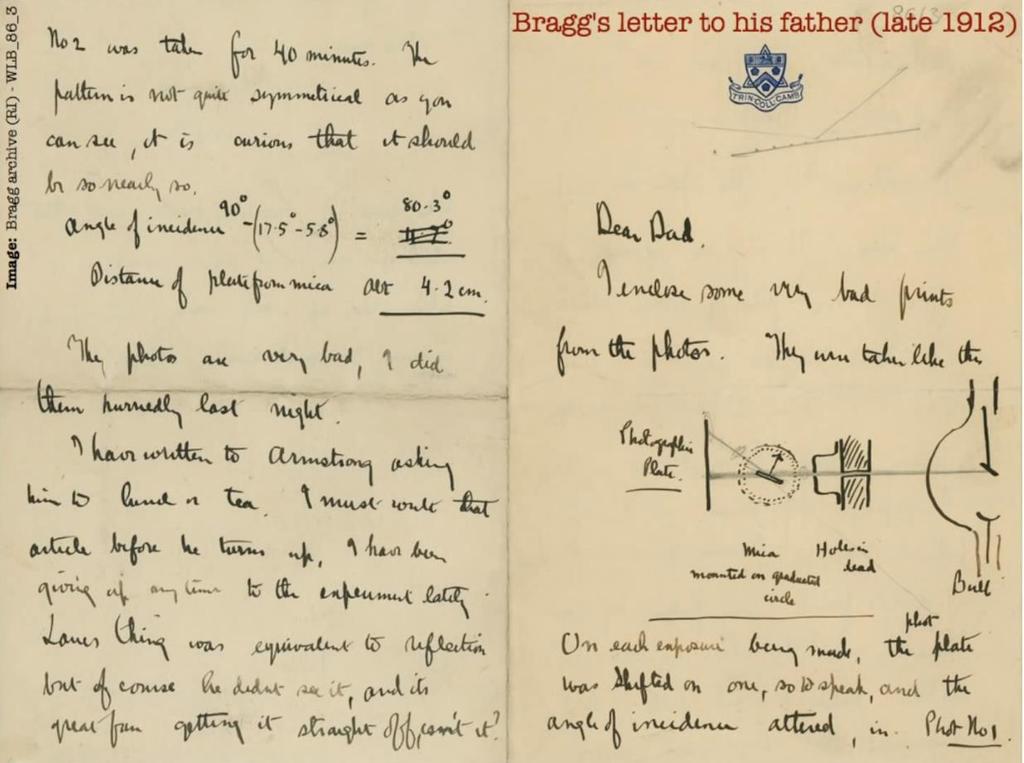 Image: Bragg archive (RI) - WLB_86_3
Bragg's letter to his father (late 1912)
No 2 was taken for 40 minutes. The
pattern is not quite symmetrical as you
can see, it is curious that it should
be so nearly so.
Angle of incidence 90° - (17.5° - 5.8°) = 80.3°
Distance of plate from mica abt 4.2 cm.
The photos are very bad, I did
them hurriedly last night.
I have written to Armstrong asking
him to lunch or tea. I must write that
article before he turns up, I have been
giving up my time to the experiment lately.
Laues thing was equivalent to reflection
but of course he didnt see it, and its
great fun getting it straight off, isn't it?
TRIN:COLL:CAMB
Dear Dad.
I enclose some very bad prints
from the photos. They were taken like this
Photographic
Plate.
Mica
mounted on graduated
circle
Holes in
lead
Bulb
On each exposure being made, the phot plate
was shifted on one, so to speak, and the
angle of incidence altered, in Phot No 1.